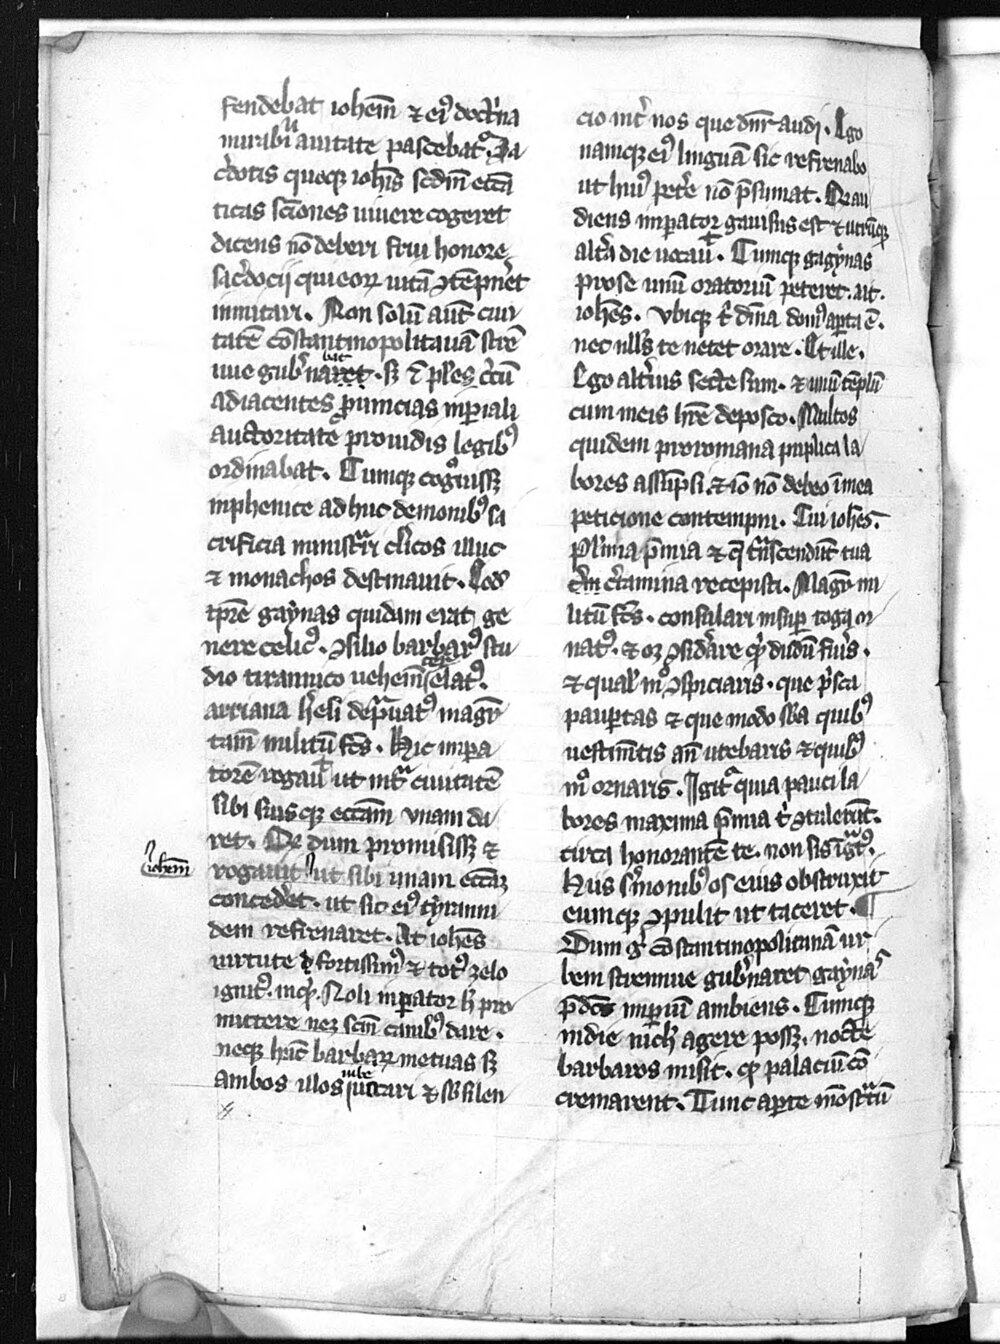 fendebat ioh̅em ⁊ ei᷒ doct̓na
mirabil̓ auitate pascebat᷑. Sa
c̓dotis quoqꝫ ioh̅is sc̅dm ecc̅a
ticas sc̅iones uiuere cogeret
dicens no̅ deberi frui honore
sac̓docij qui eoꝝ uita̅ ꝯte̅pne̅t
inmitari. Non solu̅ aut̅ ciui
tate̅ co̅stantinopolitana̅ stre̅
nue gub̓naret bat. sꝫ ⁊ pl̓es c̓cu̅
adiacentes ꝓuincias inp̲iali
auctoritate prouidis legib᷒
ordinabat. Cumqꝫ cog᷒uissꝫ
inphenice adhuc demonib᷒ sa
crificia minist᷑ri cl̓icos illuc
⁊ monachos destinauit. Eod̅
tp̅re gaynas quidam erat ge
nere celic᷒. ꝯsilio barbar᷒ stu
dio tirannico uehem̅t᷑ elat᷒.
arriana h̓esi dep̓uat᷒ mag̅r
tam̅ militu̅ fc̅s. Hic inpa
tore̅ rogau̅ ut int᷑ ciuitate̅
sibi suisqꝫ ecc̅am unam da
ret. Qd̓ dum promisissꝫ ⁊
rogauit ioh̅em ut sibi unam ecc̅aꝫ
conced̓et. ut sic ei᷒ tyranni
dem refrenaret. At ioh̅es
uirtute fortissim᷒ ⁊ tot᷒ zelo
ignit᷒. inq̓. Noli inp̲ator h̓ pro
mittere neꝫ sc̅m canib᷒ dare.
neqꝫ hu̅c barbaꝝ metuas sꝫ
ambos illos iube uocari ⁊ sb̓ silen
cio int̓ nos que dnr̅ audi. Ego
namqꝫ ei᷒ lingua̅ sic refrenabo
ut hui᷒ pet̓e no̅ p̅sumat. Qd̓ au
diens inp̲ator gauisus est ⁊ utru̅qꝫ
alt̓a die uocau̅. Cumqꝫ gaynas
pro se unu̅ oratoriu̅ peteret. ait.
ioh̅es. Ubiqꝫ t̓ di̅na dom᷒ ap̲ta e̅.
nec ull᷒s te uetet orare. Et ille.
Ego alt̓ius secte sum. ⁊ unu̅ te̅plu̅
cum meis h̅re deposco. Multos
quidem proromana puplica la
bores assu̅psi. ⁊ io̅ no̅ debeo i̅mea
peticione contempni. Cui ioh̅es.
Pl᷑ima p̅mia ⁊ q̅ t᷑nscendu̅t tua
c̓tamina recepisti. Mag̅r mi
litu̅ fc̅s. consulari insup̲ toga or
nat᷒. ⁊ oꝫ ꝯsid̓are q᷒ dudu̅ fu̓is.
⁊ qual᷒ m᷒ ꝯspiciaris. que p̓sca
paup̲tas ⁊ que modo sb̓a quib᷒
uestim̅tis an̅ utebaris ⁊ quib᷒
m᷒ ornaris. Igit᷑ quia pauci la
bores maxima p̅mia t̓ ꝯtuleru̅t.
circa honorante̅ te. non sis i̅g᷑t᷒.
Huis s̓monib᷒ os eius obstruxit
eumqꝫ ꝯpulit ut taceret. ¶
Dum g̓ co̅stantinopolitana̅ ur
bem strennue gub̓naret gaynas
p̅dc̅s inp̲iu̅ ambiens. Cumqꝫ
in die nich̓ agere possꝫ. nocte
barbaros misit. qꝫ palaciu̅ co̅
cremarent. Tunc ap̲te mo̅st᷑tu̅